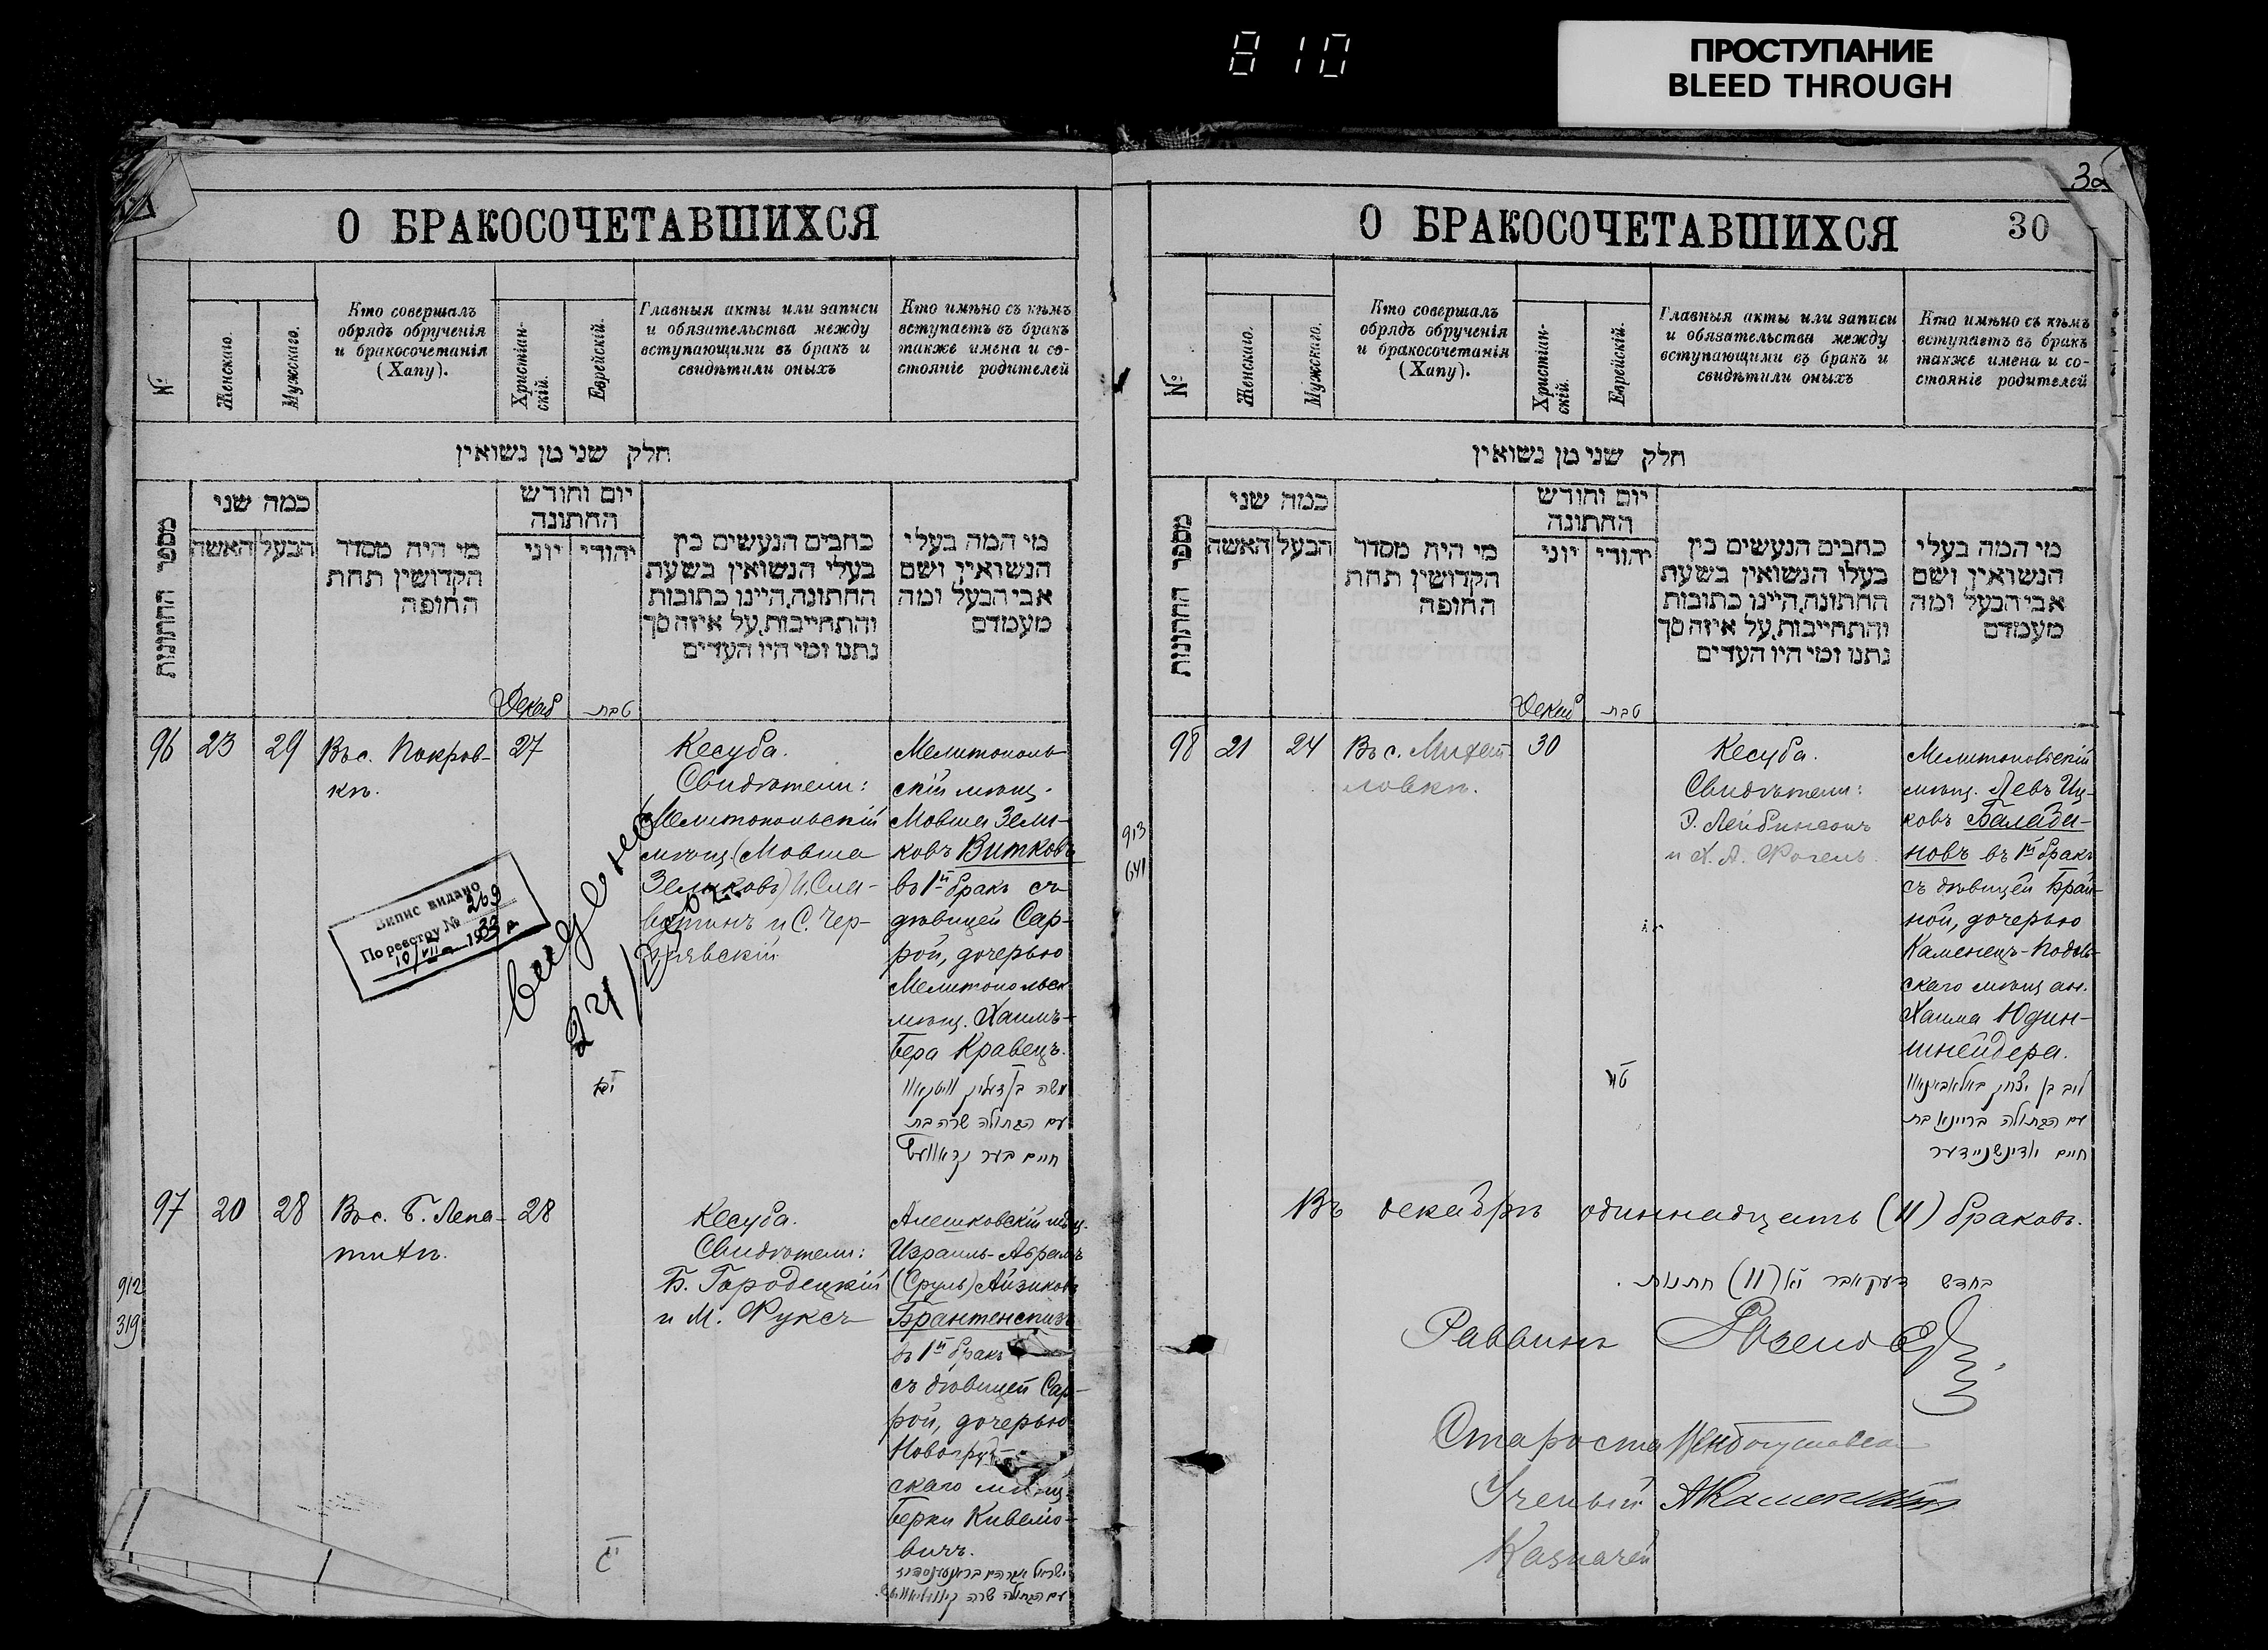 810
ПРОСТУПАНИЕ
BLEED THROUGH
О БРАКОСОЧЕТАВШИХСЯ
№
Женскаго.
Мужскаго.
Кто совершалъ
обрядъ обрученія
и бракосочетанія
(Хапу).
Христіан-
скій.
Еврейскій.
Главныя акты или записи
и обязательства между
вступающими въ бракъ и
свидѣтили оныхъ
Кто имѣно съ кѣмъ
вступаетъ въ бракъ
также имена и со-
стояніе родителей
חלק שני מן נשואין
מספר החתונות
כמה שני
האשה
הבעל
מי היה מסדר
הקדושין תחת
החופה
יום וחודש
החתונה
יוני
יהודי
כתבים הנעשים בין
בעלי הנשואין בשעת
החתונה, היינו כתובות
והתחייבות, על איזה סך
נתנו ומי היו העדים
מי המה בעלי
הנשואין ושם
אבי הבעל ומה
מעמדם
Декаб
טבת
96
23
29
Въ с. Покров-
кѣ.
27
Кесуба.
Свидѣтели:
Мелитопольскій
мѣщ. (Мовша
Зеликовъ) И. Сла-
и С. Чер-
Мелитополь-
скій мѣщ.
Мовша Зели-
ковъ Витковъ
въ 1й бракъ съ
дѣвицей Сар-
рой, дочерью
Мелитопольск.
мѣщ. Хаимъ-
Бера Кравецъ.
משה בן זעליג וויטקאוו
עם הבתולה שרה בת
חיים בער קראוועץ
Випис видано
По реєстру № 269
10/VII 1939 г
24/
97
20
28
Въ с. Б. Лепа-
тихѣ.
28
Кесуба.
Свидѣтели:
Б. Городецкій
и М. Фуксъ
Алешковскій мѣщ.
Израиль-Абрамъ
(Сруль) Айзиковъ
Брантенспизъ
въ 1й бракъ
съ дѣвицей Сар-
рой, дочерью
Новогруд-
скаго мѣщ.
Берки Кивело-
вичъ.
912
319
3а
О БРАКОСОЧЕТАВШИХСЯ
30
№
Женскаго.
Мужскаго.
Кто совершалъ
обрядъ обрученія
и бракосочетанія
(Хапу).
Христіан-
скій.
Еврейскій.
Главныя акты или записи
и обязательства между
вступающими въ бракъ и
свидѣтили оныхъ
Кто имѣно съ кѣмъ
вступаетъ въ бракъ
также имена и со-
стояніе родителей
חלק שני מן נשואין
מספר החתונות
כמה שני
האשה
הבעל
מי היה מסדר
הקדושין תחת
החופה
יום וחודש
החתונה
יוני
יהודי
כתבים הנעשים בין
בעלו הנשואין בשעת
החתונה, היינו כתובות
והתחייבות, על איזה סך
נתנו ומי היו העדים
מי המה בעלי
הנשואין ושם
אבי הבעל ומה
מעמדם
Декаб
טבת
913
641
98
21
24
Въ с. Михай-
ловкѣ.
30
Кесуба.
Свидѣтели:
Э. Лейбинсонъ
и Х. А. Фогель.
Мелитопольскій
мѣщ. Левъ Иц-
ковъ Балаби-
новъ въ 1й бракъ
съ дѣвицей Брай-
ной, дочерью
Каменецъ-Подоль-
скаго мѣщан.
Хаима Юдин-
шнейдера.
לוב בן יצחק באלאבינאוו
עם הבתולה בריינא בת
חיים יודינשניידער
Въ декабрѣ одиннадцать (11) браковъ.
בחדש דעקאבר יא (11) חתנות.
Раввинъ
Староста
Ученый АКамен
Казначей